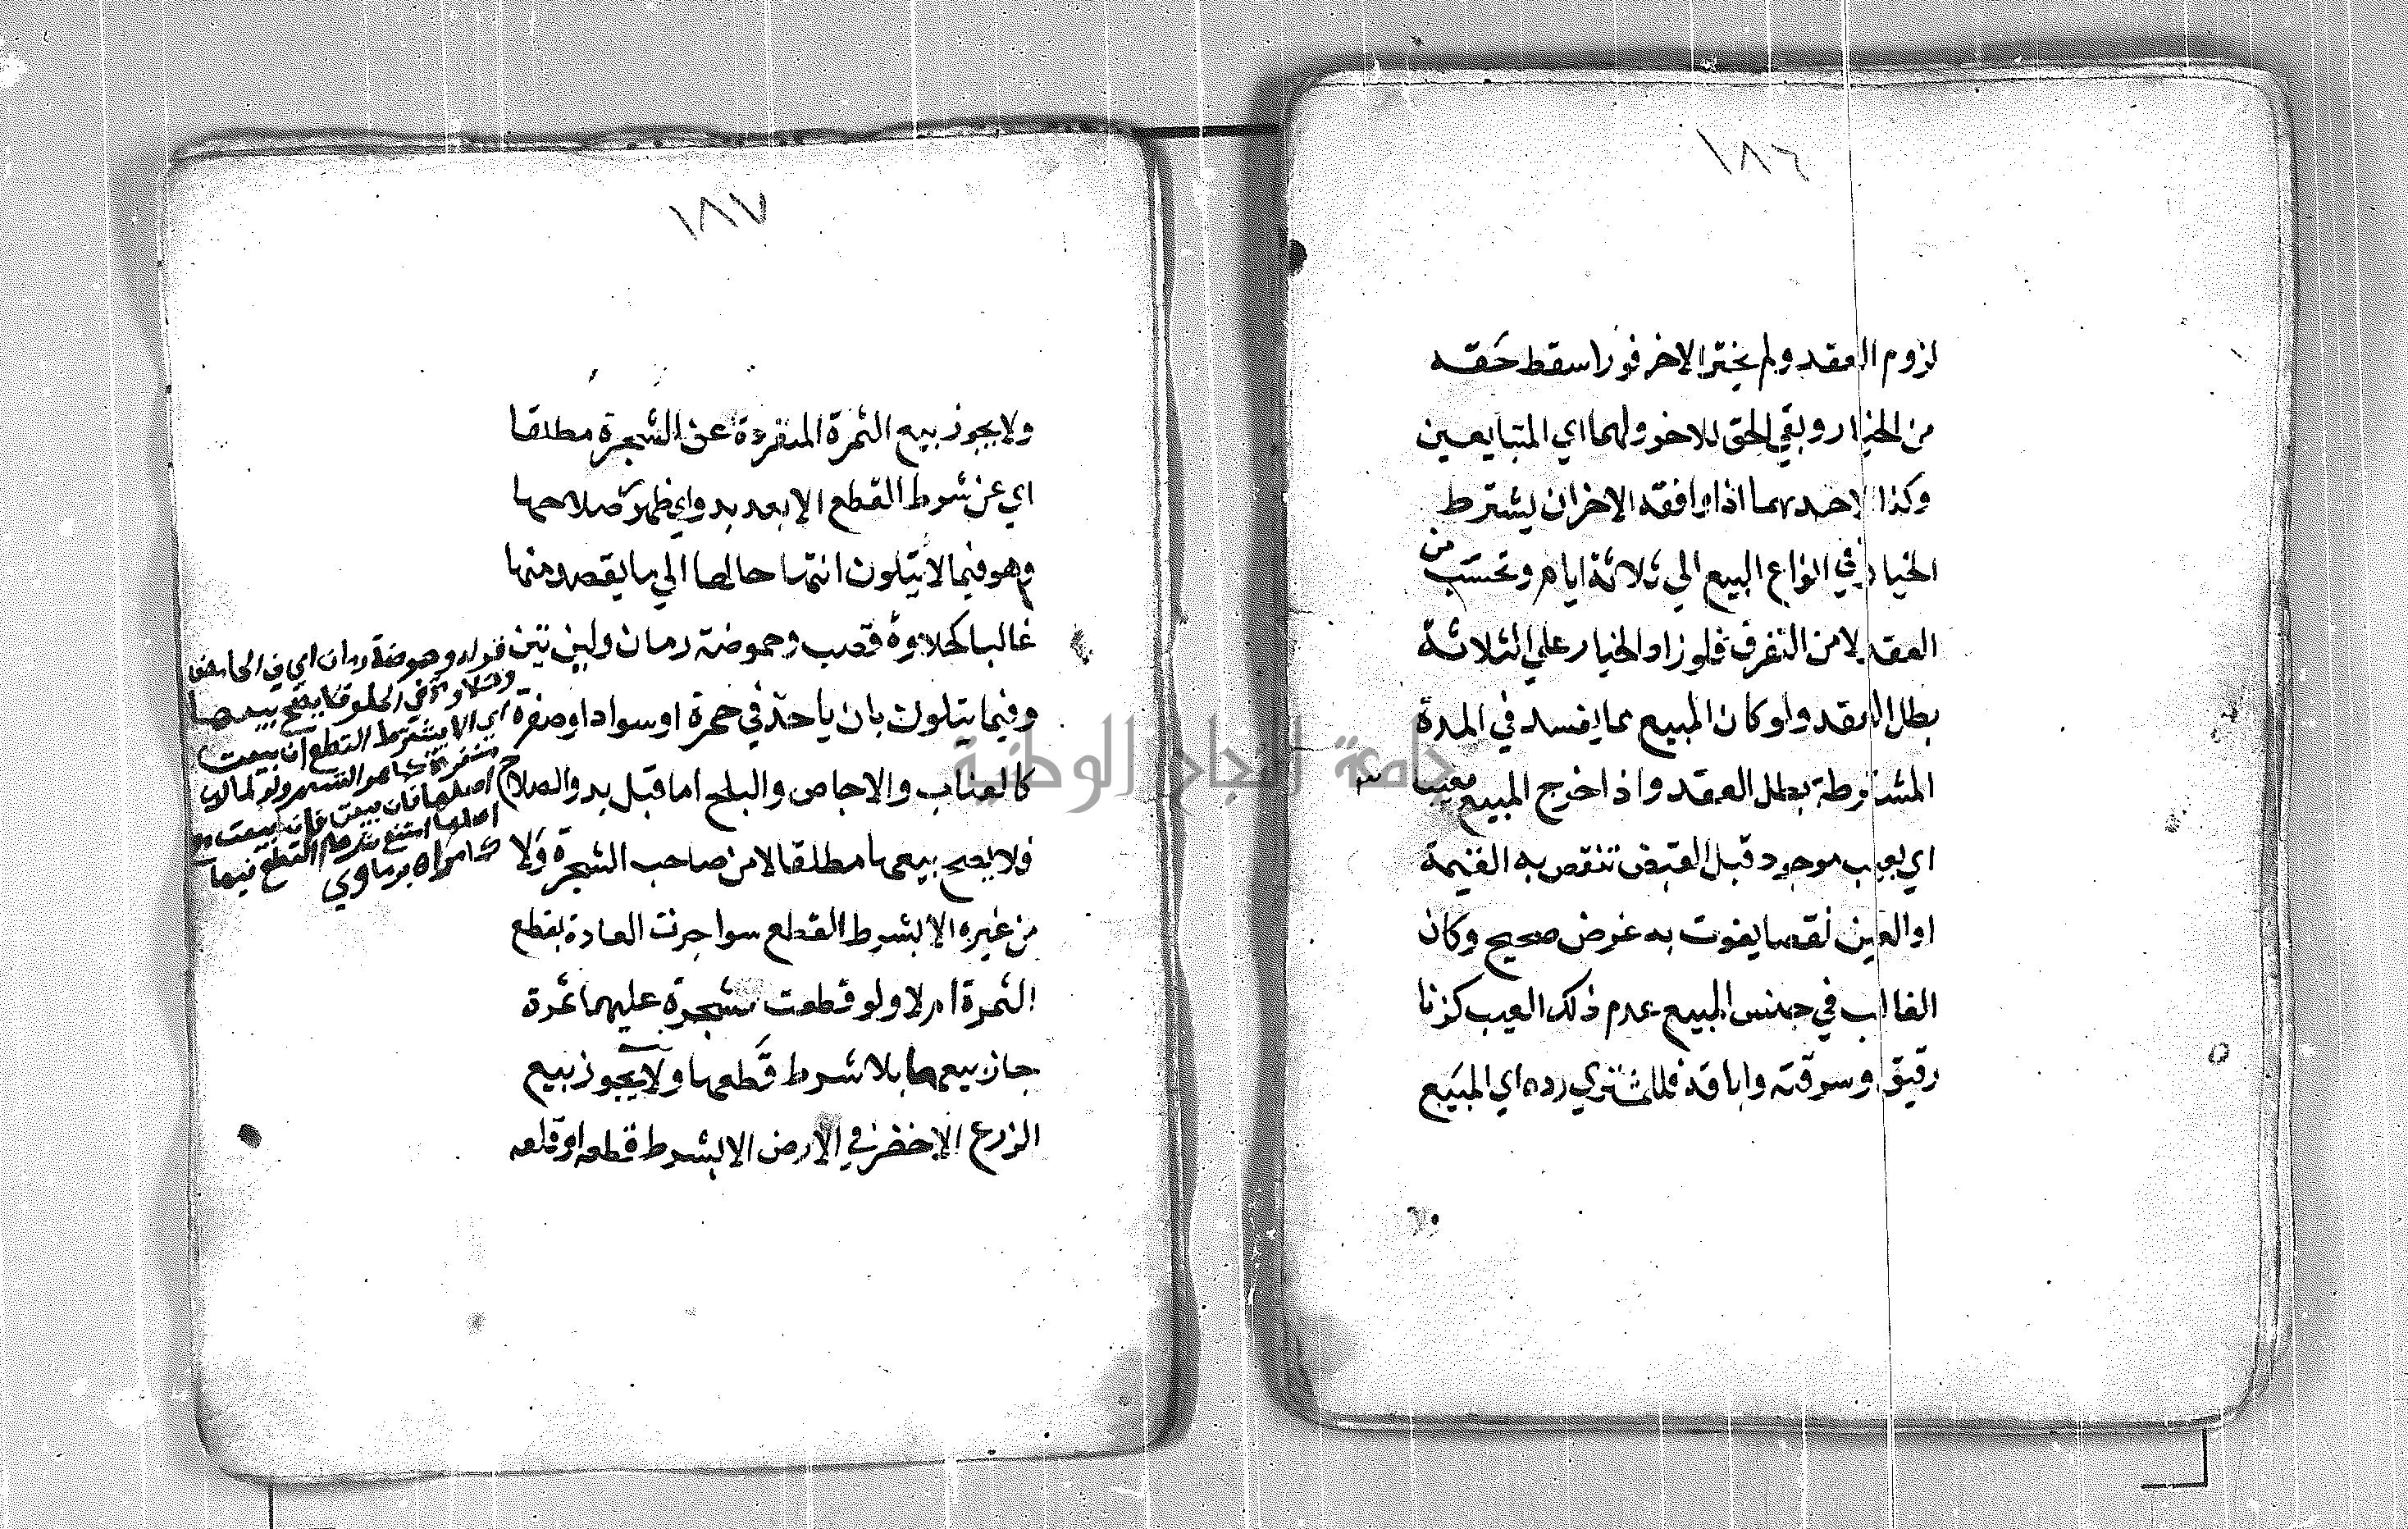 ١٨٦
لزوم العقد ولم يختر الاخر فورا سقط حقه
من الخيار وبقي الحق للاخر ولهما اي المتبايعين
وكذا لاحدهما اذا وافقه الاخر ان يشترط
الخيار في انواع البيع الي ثلاثة ايام وتحسب من
العقد لا من التفرق فلو زاد الخيار علي الثلاثة
بطل العقد ولو كان المبيع مما يفسد في المدة
المشترطة بطل العقد واذا خرج المبيع معيبا
اي بعيب موجود قبل القبض تنقص به القيمة
او العين نقصا يفوت به غرض صحيح وكان
الغالب في جنس المبيع عدم ذلك العيب كزنا
رقيق وسرقته واباقه فللمشتري رده اي المبيع
١٨٧
ولا يجوز بيع الثمرة المنفردة عن الشجرة مطلقا
اي عن شرط القطع الا بعد بدو اي ظهر صلاحها
وهو فيما لا يتلون انتها حالها الي ما يقصد منها
غالبا كحلاوة قصب وحموضة رمان ولين تين
وفيما يتلون بان ياخذ في حمرة او سواد او صفرة
كالعناب والاجاص والبلح اما قبل بدو الصلاح
فلا يصح بيعها مطلقا لا من صاحب الشجرة ولا
من غيره الا بشرط القطع سوا جرت العادة بقطع
الثمرة ام لا ولو قطعت شجرة عليها ثمرة
جاز بيعها بلا شرط قطعها ولا يجوز بيع
الزرع الاخضر في الارض الا بشرط قطعه او قلعه
قوله وحموضة رمان اي في الحامض
وحلاوة في الحلو فلا يصح بيعها
اي الا بشرط القطع ان بيعت
اصلها فان بيعت
اصلها امتنع شرط القطع فيها
كما مر اه برماوي
جامعة النجاح الوطنية